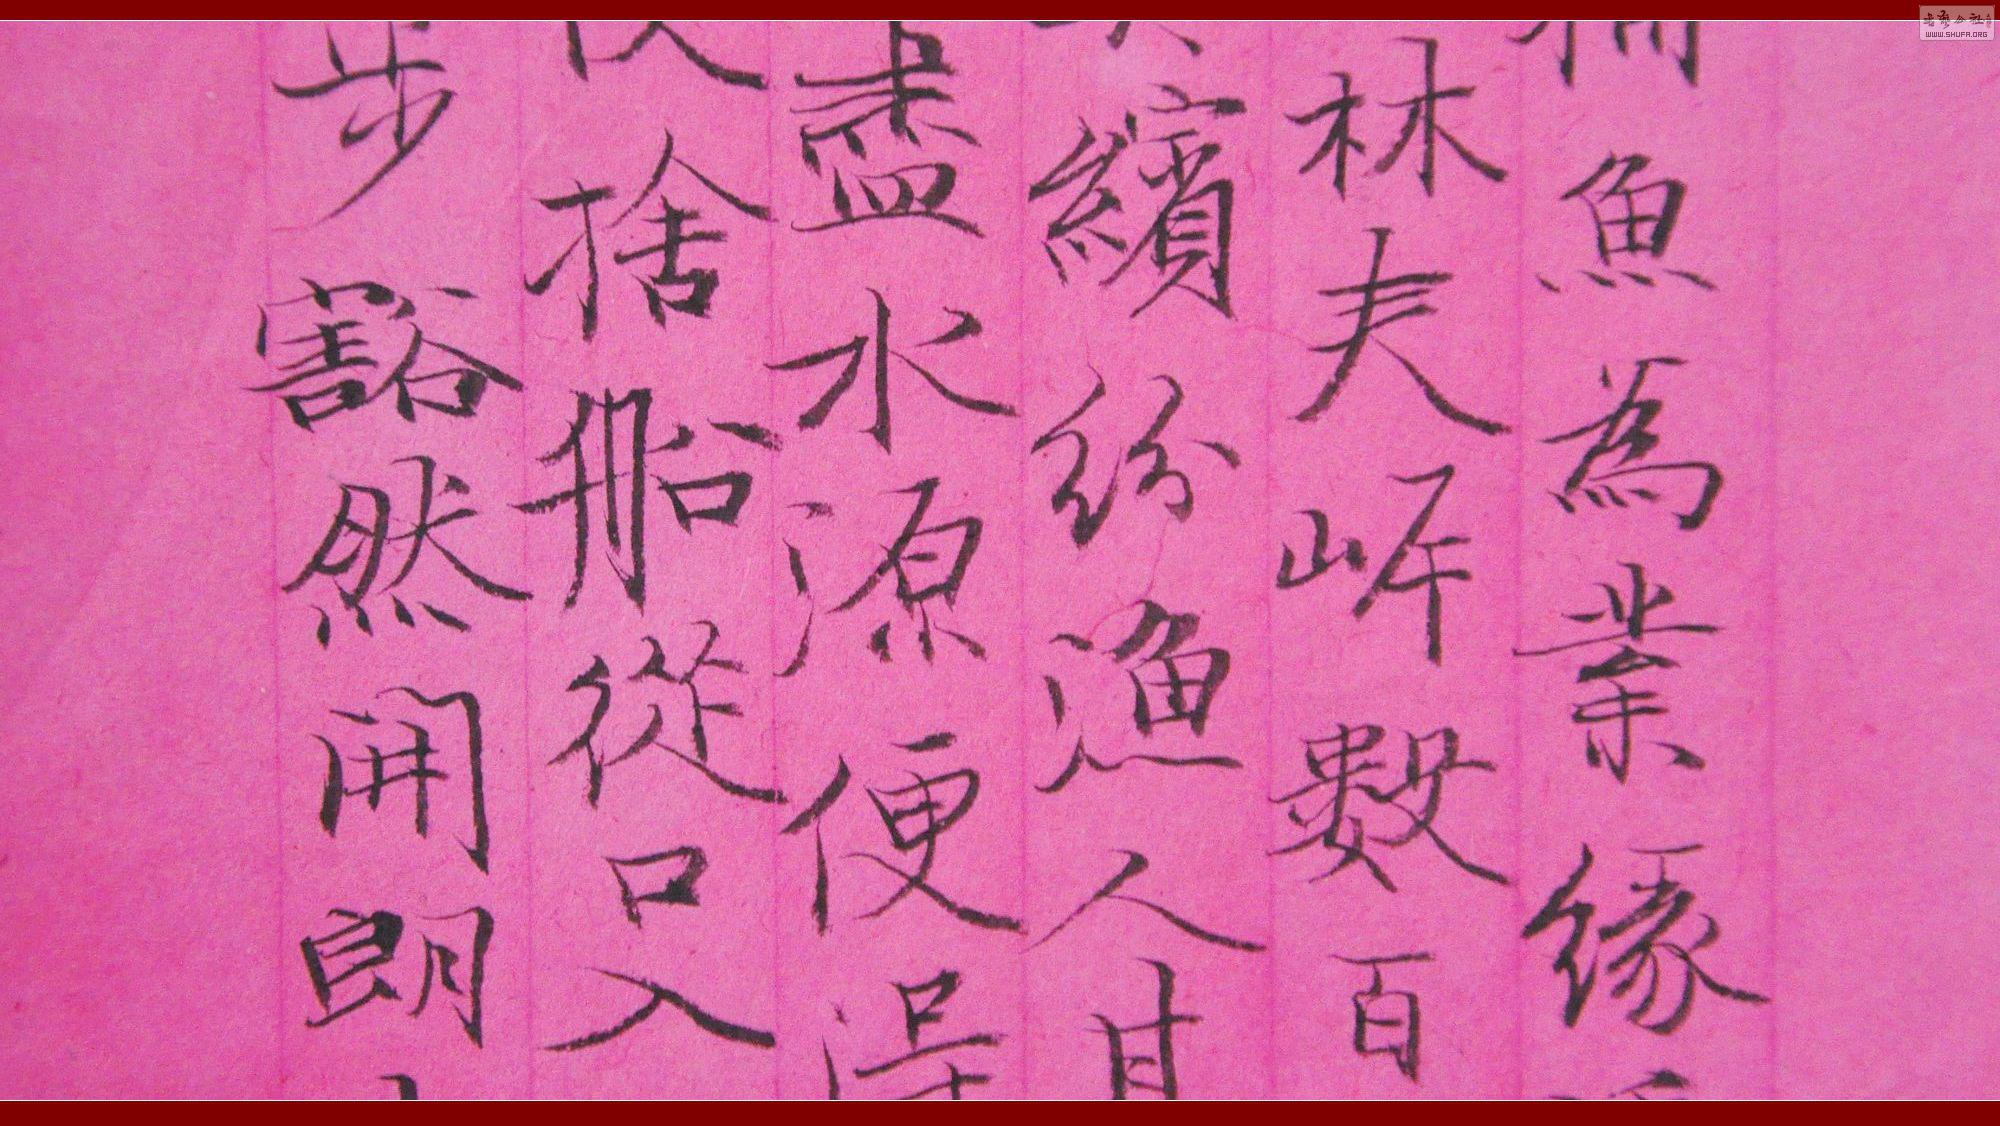 捕魚為業緣
林夾岸數百
繽紛漁人甚
盡水源便得
捨船從口入
步豁然開朗
WWW.SHUFA.ORG